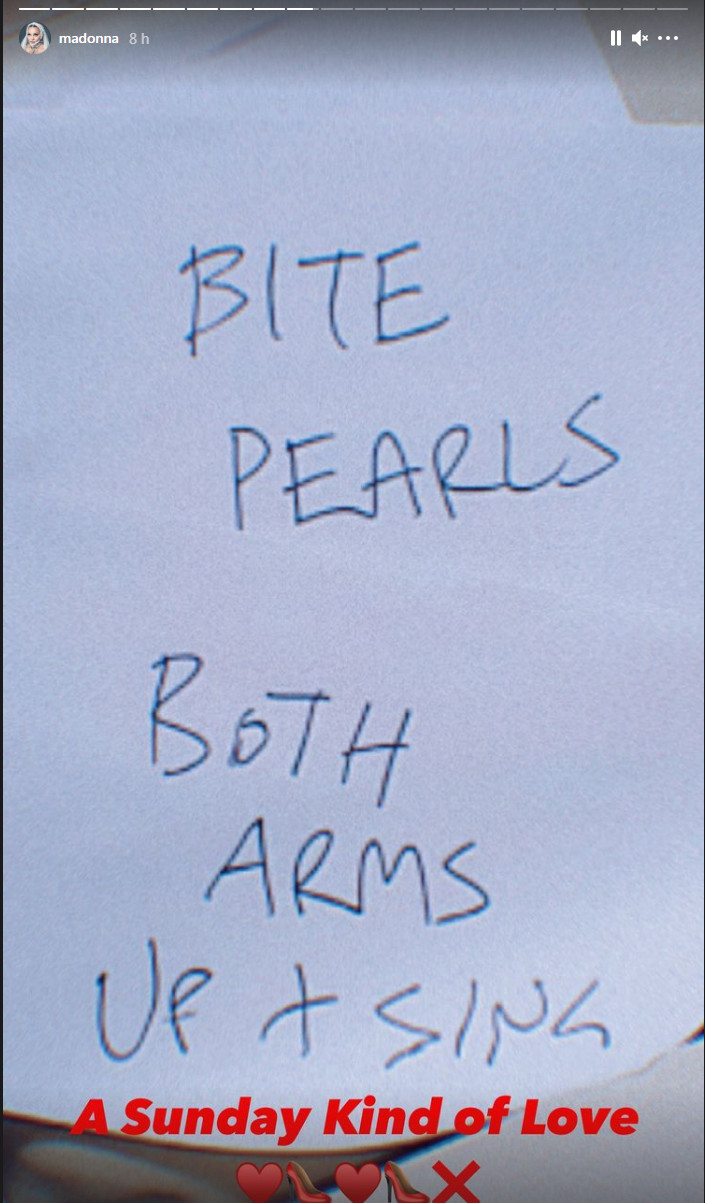 madonna 8 h
BITE
PEARLS
BOTH
ARMS
UP + SING
A Sunday Kind of Love
❤️👠❤️👠❌